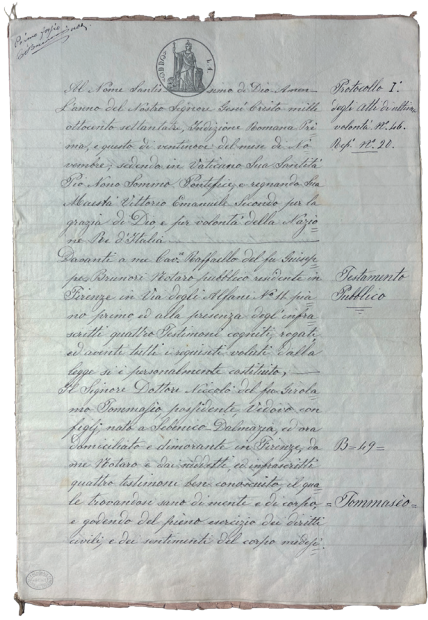 Primo foglio
Al Nome Santissimo di Dio Amen
L'anno del Nostro Signore Gesù Cristo mille
ottocento settantadue, Indizione Romana Pri
ma, e questo dì ventinove del mese di No
vembre, sedendo in Vaticano Sua Santità
Pio Nono Sommo Pontefice, e regnando Sua
Maestà Vittorio Emanuele Secondo per la
grazia di Dio e per volontà della Nazio
ne Re d'Italia
Davanti a me Cav. Raffaello del fu Giusep
pe Brunori Notaro pubblico residente in
Firenze in Via degli Alfani N.° pia
no primo ed alla presenza degl'infra
scritti quattro Testimoni cogniti, rogati
ed aventi tutti i requisiti voluti dalla
legge si è personalmente costituito,
Il Signore Dottore Niccolò del fu Girola
mo Tommaseo possidente, Vedovo con
figli, nato a Sebenico Dalmazia, ed ora
domiciliato e dimorante in Firenze, da
me Notaro e dai suddetti ed infrascritti
quattro testimoni ben conosciuto, il qua
le trovandosi sano di mente e di corpo,
e godendo del pieno esercizio dei diritti
civili, e dei sentimenti del corpo medesi.
Protocollo I°
degli Atti di ultima
volontà N.° 46.
Rep. N.° 20.
Testamento
Pubblico
B=49=
=Tommaseo=